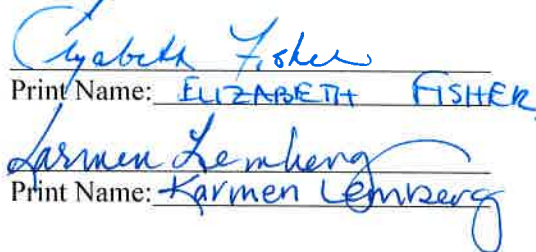 Elizabeth Fisher
Print Name: ELIZABETH FISHER
Karmen Lemberg
Print Name: Karmen Lemberg